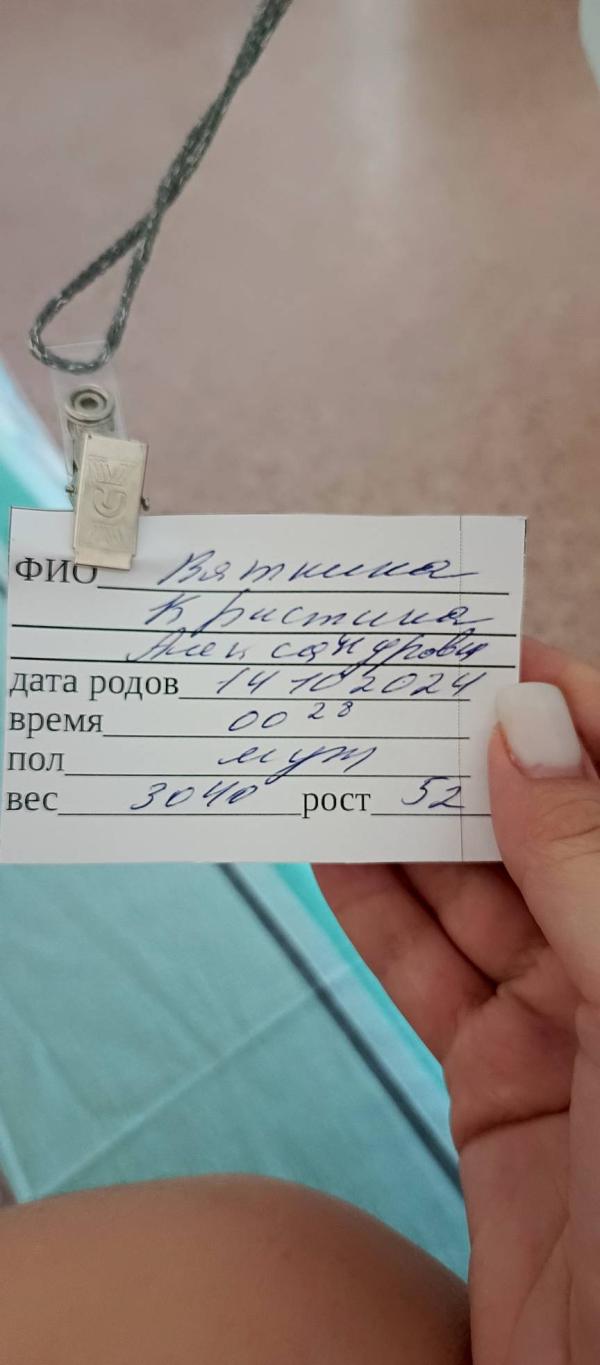 ФИО Вяткина
Кристина
Александровн
дата родов 14 10 2024
время 00 28
пол муж
вес 3040 рост 52